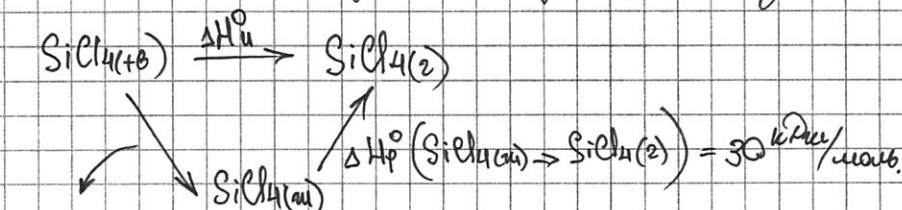 SiCl4(тв) ΔH°и → SiCl4(г)
SiCl4(ж) ΔH°р (SiCl4(ж) → SiCl4(г)) = 30 кДж/моль.